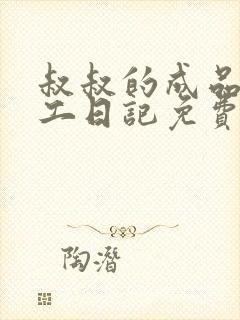 叔叔的成品
工日記免費
陶潛